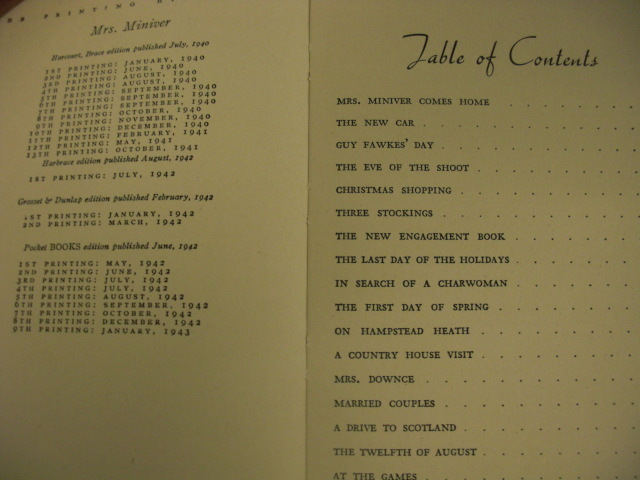 PRINTING
Mrs. Miniver
Harcourt, Brace edition published July, 1940
1ST PRINTING: JANUARY, 1940
2ND PRINTING: JUNE, 1940
3RD PRINTING: AUGUST, 1940
4TH PRINTING: AUGUST, 1940
5TH PRINTING: SEPTEMBER, 1940
6TH PRINTING: SEPTEMBER, 1940
7TH PRINTING: SEPTEMBER, 1940
8TH PRINTING: OCTOBER, 1940
9TH PRINTING: NOVEMBER, 1940
10TH PRINTING: DECEMBER, 1940
11TH PRINTING: FEBRUARY, 1941
12TH PRINTING: MAY, 1941
13TH PRINTING: OCTOBER, 1941
Harbrace edition published August, 1942
1ST PRINTING: JULY, 1942
Grosset & Dunlap edition published February, 1942
1ST PRINTING: JANUARY, 1942
2ND PRINTING: MARCH, 1942
Pocket BOOKS edition published June, 1942
1ST PRINTING: MAY, 1942
2ND PRINTING: JUNE, 1942
3RD PRINTING: JULY, 1942
4TH PRINTING: JULY, 1942
5TH PRINTING: AUGUST, 1942
6TH PRINTING: SEPTEMBER, 1942
7TH PRINTING: OCTOBER, 1942
8TH PRINTING: DECEMBER, 1942
9TH PRINTING: JANUARY, 1943
Table of Contents
MRS. MINIVER COMES HOME
THE NEW CAR
GUY FAWKES' DAY
THE EVE OF THE SHOOT
CHRISTMAS SHOPPING
THREE STOCKINGS
THE NEW ENGAGEMENT BOOK
THE LAST DAY OF THE HOLIDAYS
IN SEARCH OF A CHARWOMAN
THE FIRST DAY OF SPRING
ON HAMPSTEAD HEATH
A COUNTRY HOUSE VISIT
MRS. DOWNCE
MARRIED COUPLES
A DRIVE TO SCOTLAND
THE TWELFTH OF AUGUST
AT THE GAMES